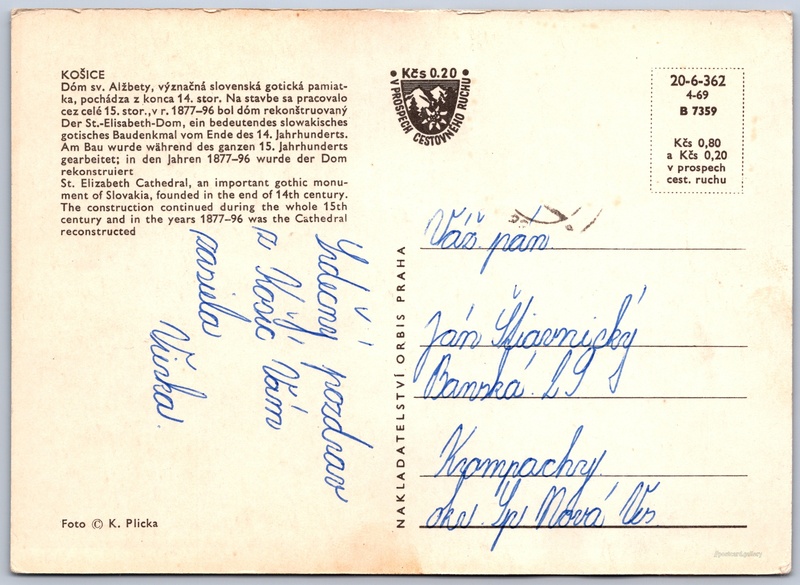 KOŠICE
Dóm sv. Alžbety, význačná slovenská gotická pamiat-
ka, pochádza z konca 14. stor. Na stavbe sa pracovalo
cez celé 15. stor., v r. 1877–96 bol dóm rekonštruovaný
Der St.-Elisabeth-Dom, ein bedeutendes slowakisches
gotisches Baudenkmal vom Ende des 14. Jahrhunderts.
Am Bau wurde während des ganzen 15. Jahrhunderts
gearbeitet; in den Jahren 1877–96 wurde der Dom
rekonstruiert
St. Elizabeth Cathedral, an important gothic monu-
ment of Slovakia, founded in the end of 14th century.
The construction continued during the whole 15th
century and in the years 1877–96 was the Cathedral
reconstructed
Srdečný pozdrav
z Košíc Vám
zasiela
Vierka.
Foto © K. Plicka
NAKLADATELSTVÍ ORBIS PRAHA
• Kčs 0.20 •
V PROSPECH CESTOVNÉHO RUCHU
20-6-362
4-69
B 7359
Kčs 0,80
a Kčs 0,20
v prospech
cest. ruchu
Váž. pán
Ján Štiavnický
Banská
Krompachy
okr. Sp Nová Ves